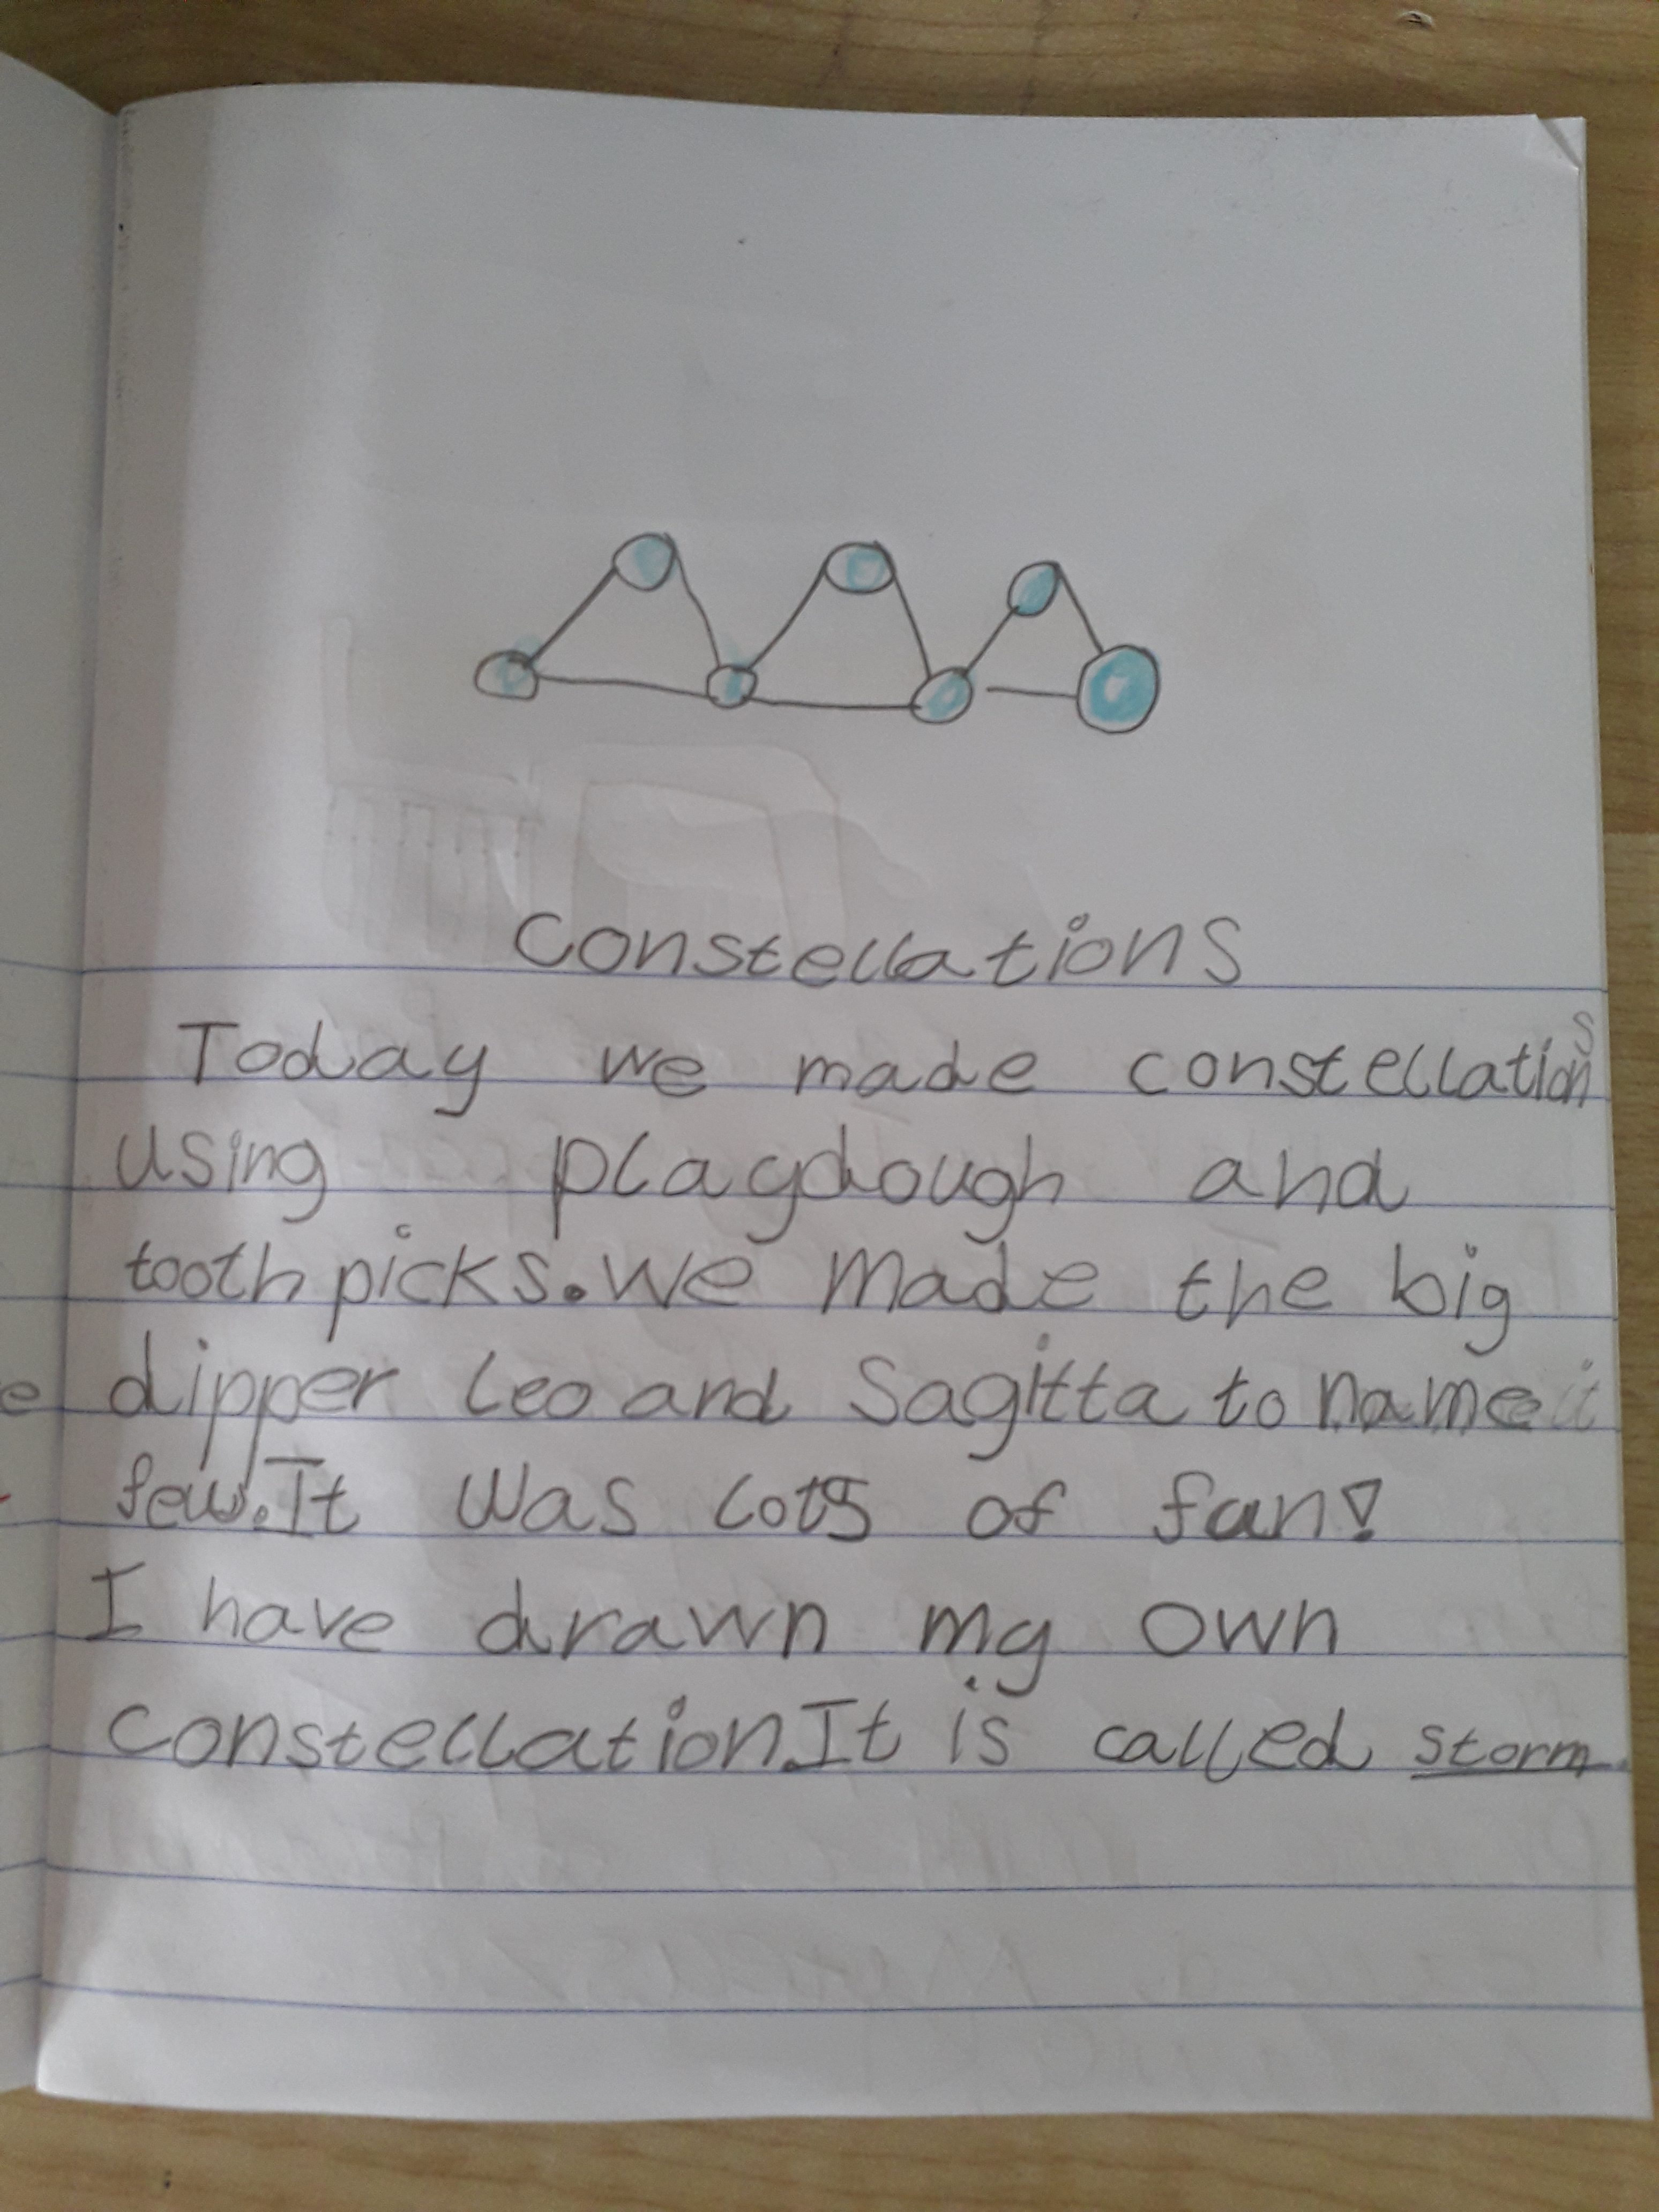 constellations
Today we made constellations
using playdough and
toothpicks. We made the big
dipper leo and Sagitta to name
few. It was lots of fan!
I have drawn my own
constellation. It is called storm.